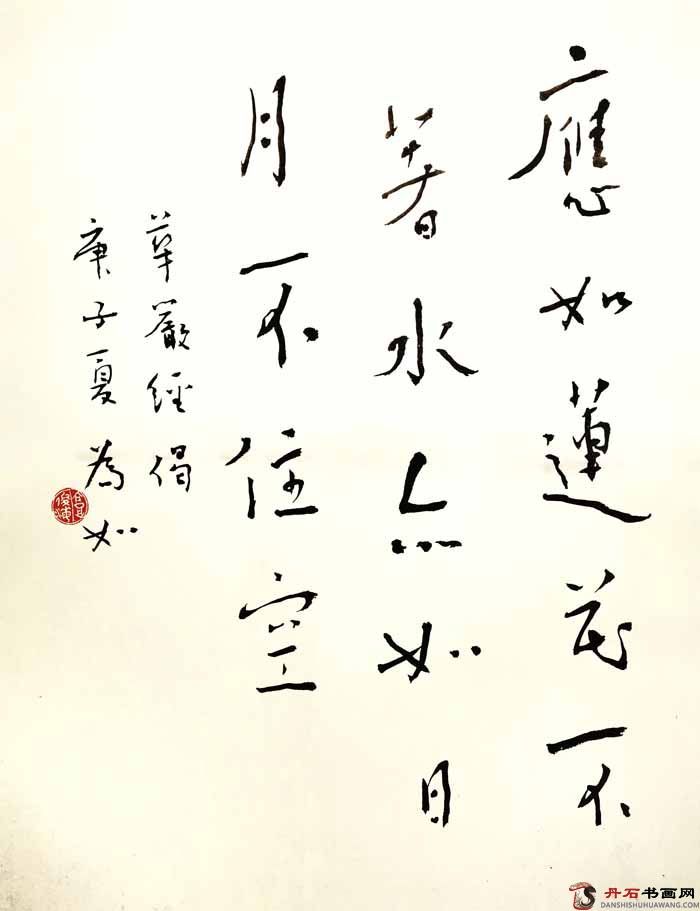 應如蓮花不
著水亦如日
月不住空
華嚴經偈
庚子夏為如
丹石书画网
DANSHISHUHUAWANG.COM